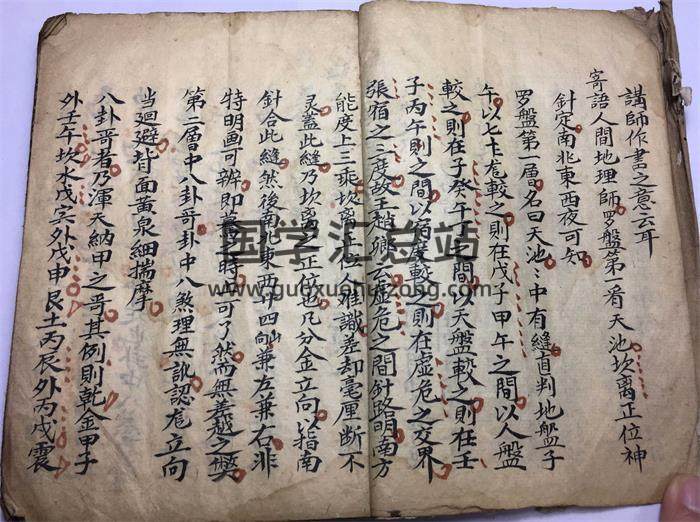 講師作書之意云耳
寄語人間地理師羅盤第一看天池坎离正位神
針定南北東西夜可知
罗盤第一層名曰天池〻中有縫直判地盤子
午以七十龙較之則在戊子甲午之間以人盤
較之則在子癸午丁之間以天盤較之則在壬
子丙午則之間以宿度較之則在虚危之交界
張宿之三度故王趙卿云虚危之間針路明南方
能度上三乘坎离正位人难識差却毫厘断不
灵盖此縫乃坎离之正位也凡分金立向以指南
針合此縫然後南北東西廿四山兼左兼右非
特明画可辨即暮夜時可了然而無差越之弊
第二層中八卦哥卦中八煞理無訛認龙立向
当廻避背面黄泉細揣摩
八卦哥者乃渾天納甲之哥其例則乾金甲子
外壬午坎水戊寅外戊申艮土丙辰外丙戌震
国学汇总站
www.guoxuehuizong.com